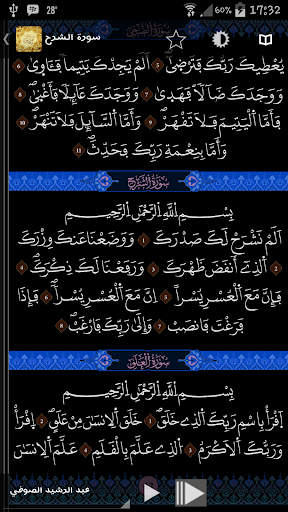 28° 60% 17:32
سورة الشرح
يُعْطِيكَ رَبُّكَ فَتَرْضَىٰ 5 أَلَمْ يَجِدْكَ يَتِيماً فَـَٔاوَىٰ 6
وَوَجَدَكَ ضَآلّاً فَهَدَىٰ 7 وَوَجَدَكَ عَآئِلاً فَأَغْنَىٰ 8
فَأَمَّا اَلْيَتِيمَ فَلَا تَقْهَرْ 9 وَأَمَّا اَلسَّآئِلَ فَلَا تَنْهَرْ 10
وَأَمَّا بِنِعْمَةِ رَبِّكَ فَحَدِّثْ 11
سُورَةُ الشَّرْحِ
بِسْمِ اِللَّهِ اِلرَّحْمَٰنِ اِلرَّحِيمِ
أَلَمْ نَشْرَحْ لَكَ صَدْرَكَ 1 وَوَضَعْنَا عَنكَ وِزْرَكَ 2
اَلَّذِے أَنقَضَ ظَهْرَكَ 3 وَرَفَعْنَا لَكَ ذِكْرَكَ 4
فَإِنَّ مَعَ اَلْعُسْرِ يُسْراً 5 اِنَّ مَعَ اَلْعُسْرِ يُسْراً 6 فَإِذَا
فَرَغْتَ فَانصَبْ 7 وَإِلَىٰ رَبِّكَ فَارْغَب 8
سُورَةُ الْعَلَقِ
بِسْمِ اِللَّهِ اِلرَّحْمَٰنِ اِلرَّحِيمِ
اِقْرَأْ بِاسْمِ رَبِّكَ اَلَّذِے خَلَقَ 1 خَلَقَ اَلِانسَٰنَ مِنْ عَلَقٍ 2 اِقْرَأْ
وَرَبُّكَ اَلَاكْرَمُ 3 اُلَّذِے عَلَّمَ بِالْقَلَمِ 4 عَلَّمَ اَلِانسَٰنَ
عبد الرشيد الصوفي